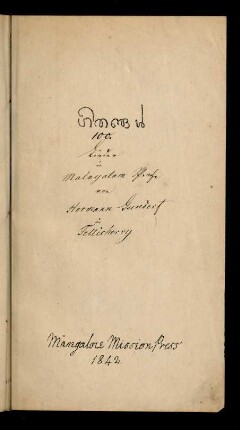 ഗീതങ്ങൾ
100
Lieder
in
Malayalam Spr.
von
Hermann Gundert
in
Tellicherry
Mangalore Mission Press
1842